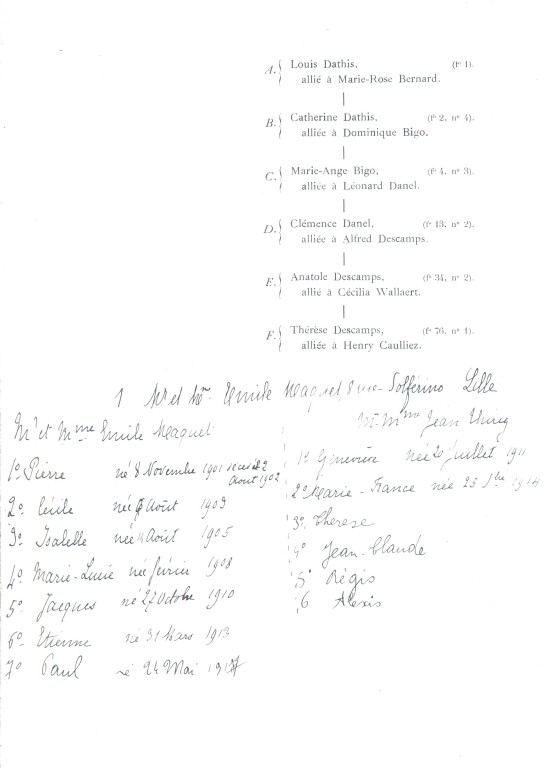 A. Louis Dathis, (fº 1).
allié à Marie-Rose Bernard.
B. Catherine Dathis, (fº 2, nº 4).
alliée à Dominique Bigo.
C. Marie-Ange Bigo, (fº 4, nº 3).
alliée à Léonard Danel.
D. Clémence Danel, (fº 13, nº 2).
alliée à Alfred Descamps.
E. Anatole Descamps, (fº 34, nº 2).
allié à Cécilia Wallaert.
F. Thérèse Descamps, (fº 76, nº 1).
alliée à Henry Caulliez.
1 Mr et Mme Emile Maquet, 8 rue Solférino Lille
Mr et Mme Emile Maquet
1º Pierre né 8 Novembre 1901 décédé 2 Août 1902
2º Cécile née 6 Août 1903
3º Isabelle née 11 Août 1905
4º Marie-Lucie née février 1908
5º Jacques né 27 Octobre 1910
6º Etienne né 31 Mars 1913
7º Paul né 24 Mai 1917
Mr Mme Jean Thiriez
1º Geneviève née 20 juillet 1911
2º Marie-France née 25 7bre 1914
3º Thérèse
4º Jean-Claude
5º Régis
6 Alexis